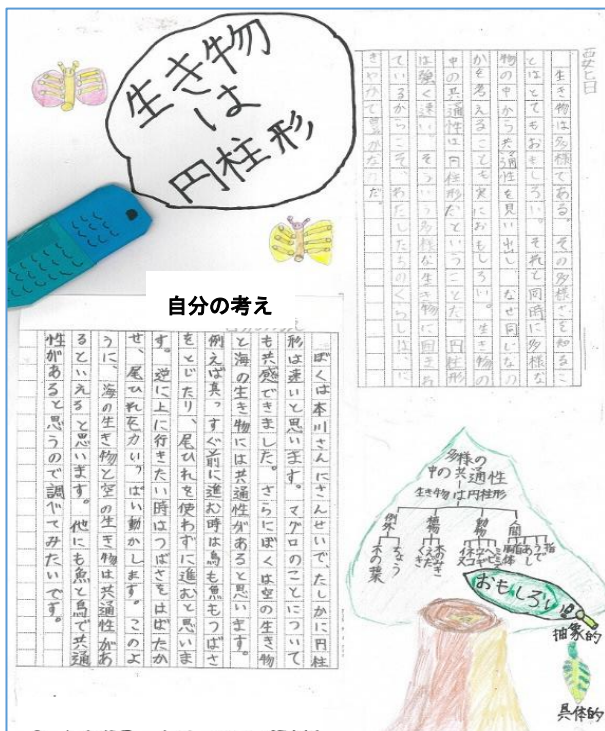 生き物
は
円柱形
要旨
生き物は多様である。その多様さを知るこ
とはとてもおもしろい。それと同時に多様な
物の中から共通性を見い出し、なぜ同じなの
かを考えることも実におもしろい。生き物の
中の共通性は円柱形だということだ。円柱形
は強く速い。そういう多様な生き物に囲まれ
ているからこそ、わたしたちのくらしは、に
ぎやかで豊かなのだ。
自分の考え
ぼくは本川さんにさんせいで、たしかに円柱
形は速いと思います。マグロのことについて
も共感できました。さらにぼくは空の生き物
と海の生き物には共通性があると思います。
例えば真っすぐ前に進む時は鳥も魚もつばさ
をとじたり、尾ひれを使わずに進むと思いま
す。逆に上に行きたい時はつばさをはばたか
せ、尾ひれを力いっぱい動かします。このよ
うに、海の生き物と空の生き物は共通性があ
るといえると思います。他にも魚と鳥で共通
性があると思うので調べてみたいです。
多様の
中の共通性
生き物は円柱形
人間
指
うで
あし
首
胴体
動物
ミミズ
ヘビ
ウナギ
ネコ
イヌ
植物
木のみき
えだ
くき
例外
木の葉
おもしろい
抽象的
具体的